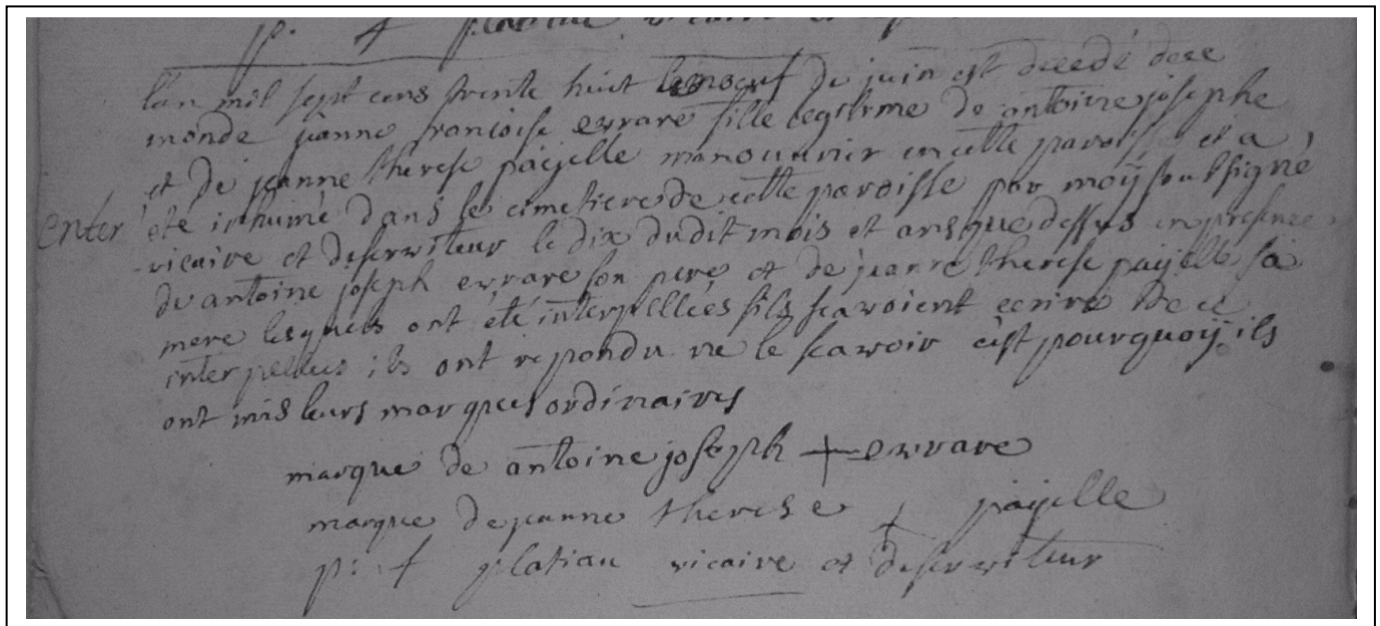 p. f platiau vicaire et
l'an mil sept cens trente huit le noeuf de juin est decedé de ce
monde jeanne francoise evrare fille legitime de antoine josephe
et de jeanne therese payelle manouvrier en cette paroisse et a
enter été inhumé dans le cimetiere de cette paroisse par moÿ soubsigné
vicaire et deserviteur le dix dudit mois et ans que dessus en presence
de antoine joseph evrare son pere et de jeanne therese payelle sa
mere lesquels ont été interpellées sils scavoient ecrire de ce
interpellus ils ont repondu ne le scavoir c'est pourquoÿ ils
ont mis leurs marques ordinaires
marque de antoine joseph + evrare
marque de jeanne therese + payelle
p: f platiau vicaire et deserviteur